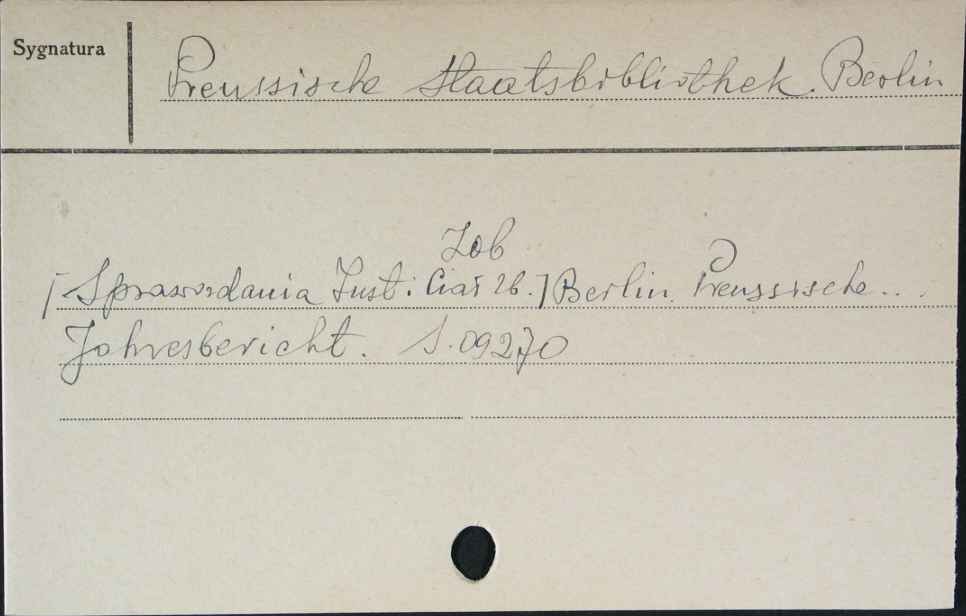 Sygnatura
Preussische Staatsbibliothek. Berlin
Zob
[Sprawozdania Inst. i Ciał zb.] Berlin. Preussische...
Jahresbericht. S. 09270